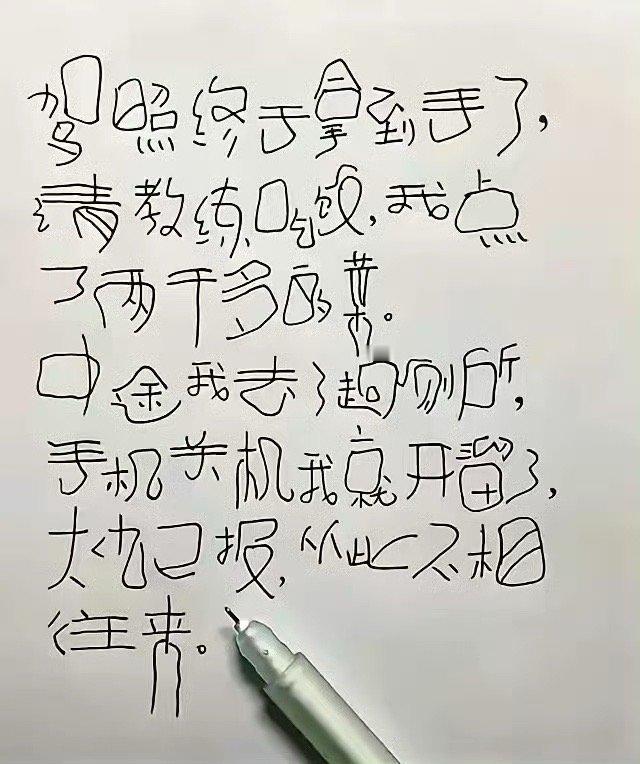 驾照终于拿到手了，
请教练吃饭，我点
了两千多的菜。
中途我去了趟厕所，
手机关机我就开溜了，
大仇已报，从此不相
往来。